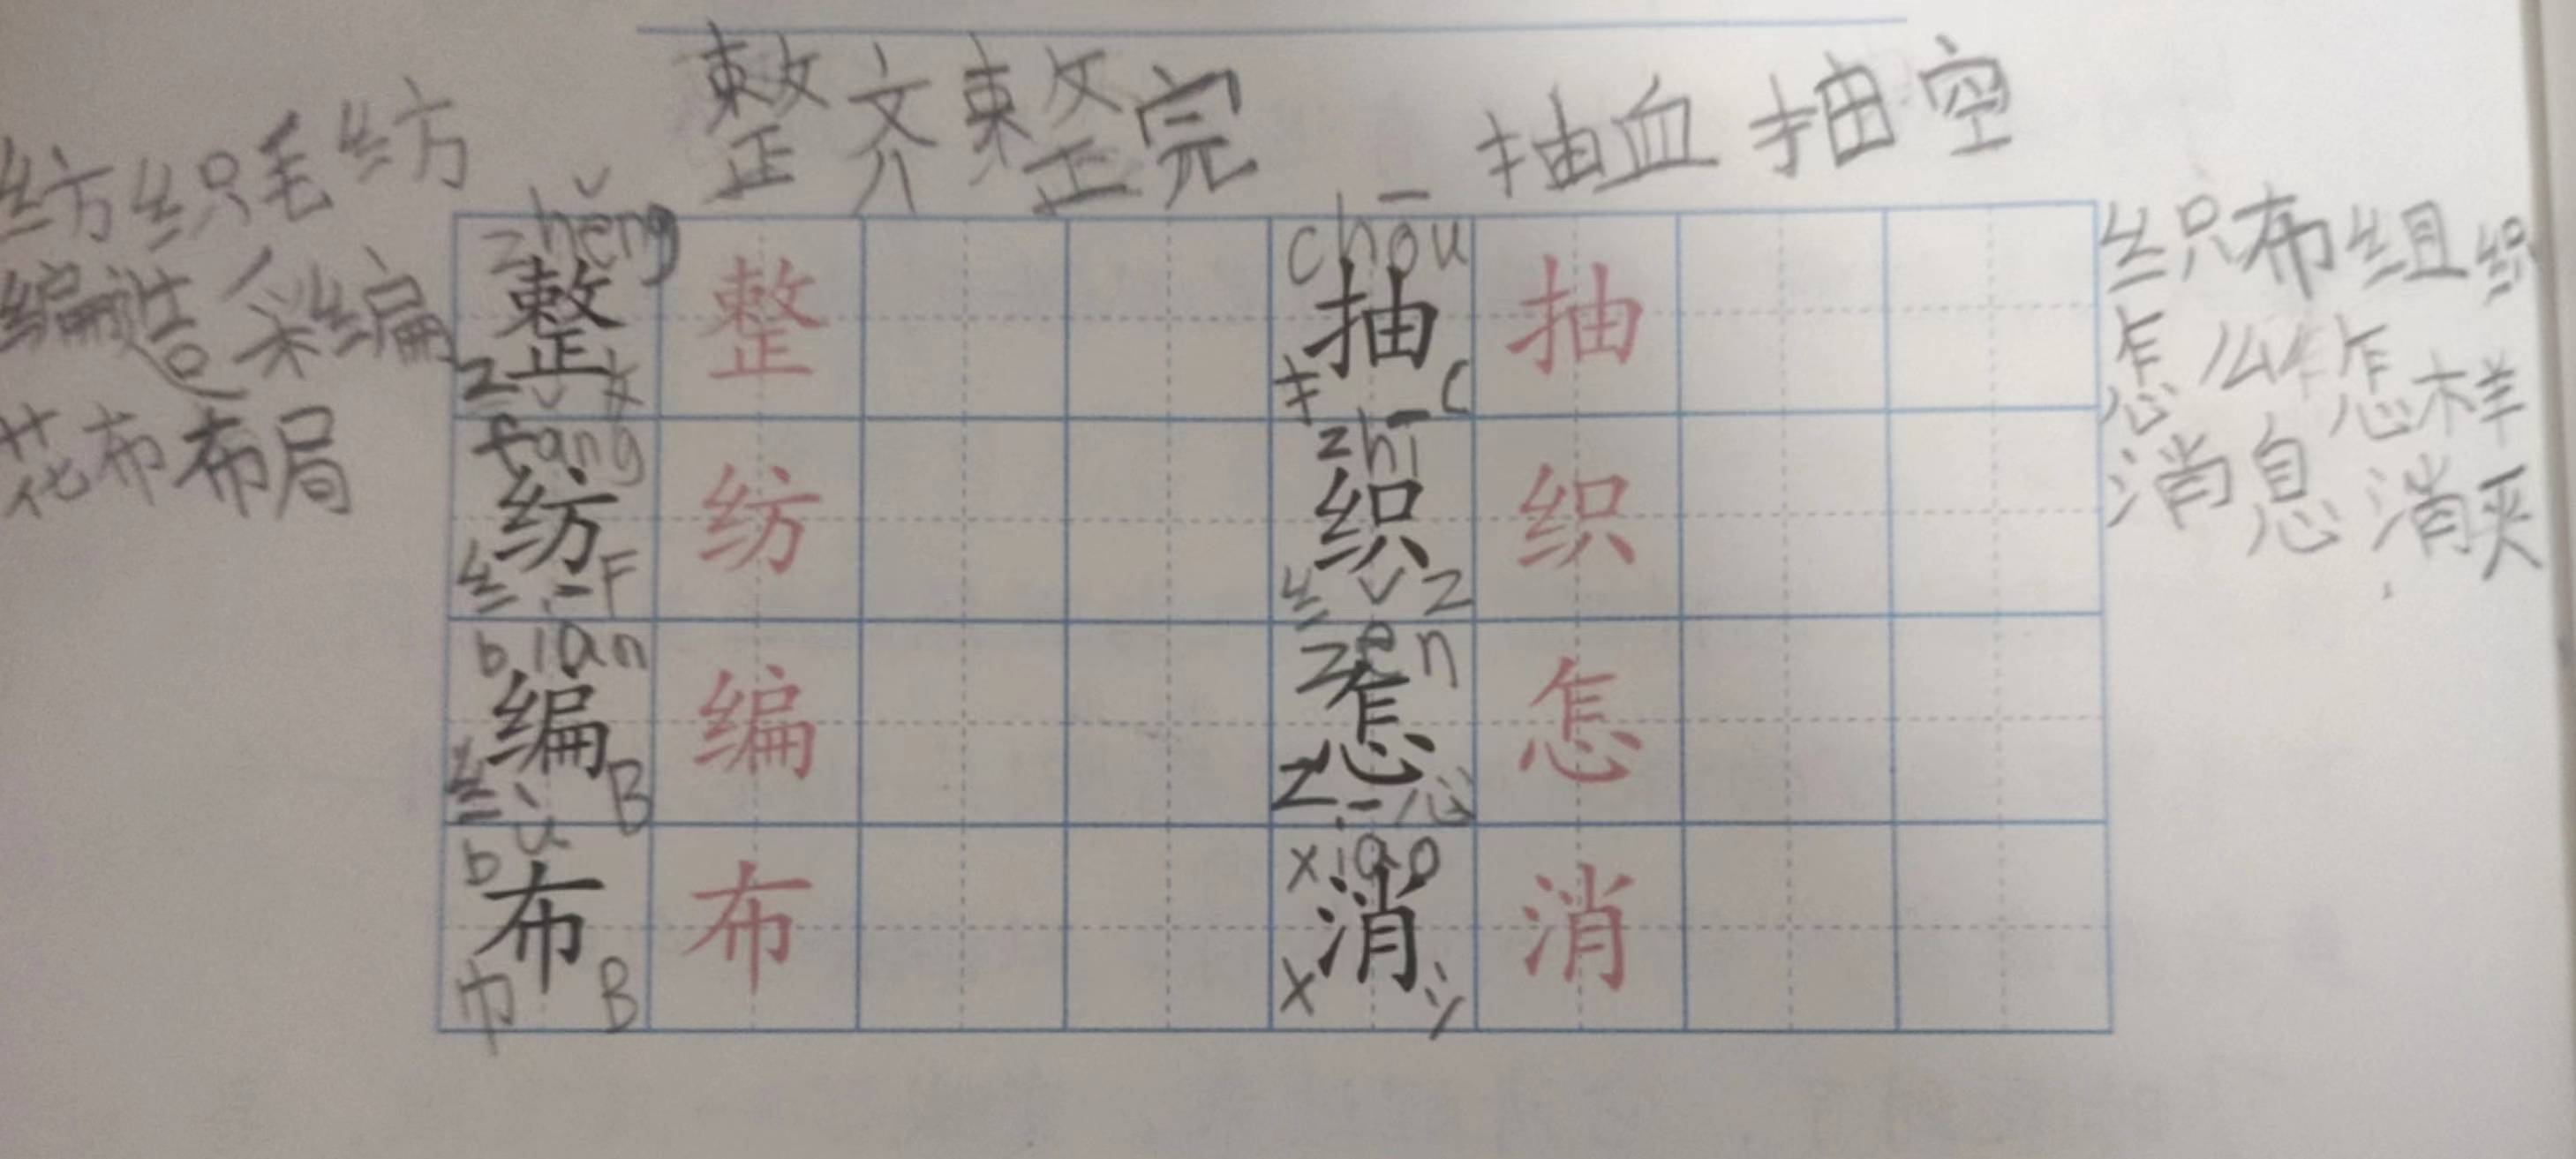 整齐整完
抽血抽空
纺织毛纺
编造采编
花布布局
zhěng
整 整
Z 攵
chōu
抽 抽
扌 C
织布组织
怎么怎样
消息消灭
fǎng
纺 纺
纟 F
zhī
织 织
纟 Z
biān
编 编
纟 B
zěn
怎 怎
Z 心
bù
布 布
巾 B
xiāo
消 消
X 氵